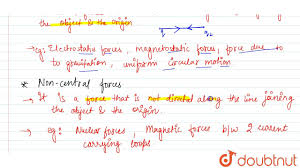 the object & the origin
q1 q2
→ eg: Electrostatic forces, magnetostatic forces, force due to
to gravitation, uniform circular motion
* Non-central forces
→ It is a force that is not directed along the line joining
the object & the origin.
→ eg: Nuclear forces, Magnetic forces b/w 2 current
carrying loops
doubtnut